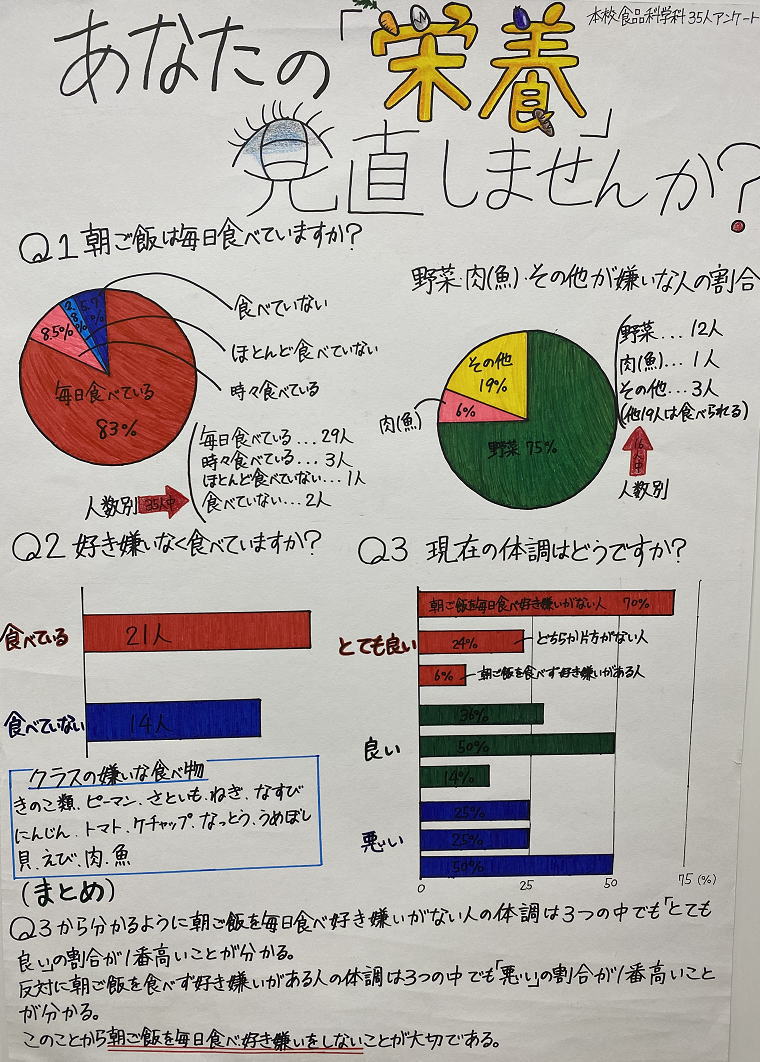 本校食品科学科35人アンケート
あなたの「栄養」
見直しませんか?
Q1 朝ご飯は毎日食べていますか?
食べていない
ほとんど食べていない
時々食べている
5.7%
2.8%
8.5%
毎日食べている
83%
人数別
35人中
毎日食べている...29人
時々食べている...3人
ほとんど食べていない...1人
食べていない...2人
野菜・肉(魚)・その他が嫌いな人の割合
その他
19%
肉(魚)
6%
野菜 75%
野菜...12人
肉(魚)...1人
その他...3人
(他19人は食べられる)
16人中
人数別
Q2 好き嫌いなく食べていますか?
食べている
21人
食べていない
14人
クラスの嫌いな食べ物
きのこ類、ピーマン、さといも、ねぎ、なすび
にんじん、トマト、ケチャップ、なっとう、うめぼし
貝、えび、肉、魚
Q3 現在の体調はどうですか?
とても良い
朝ご飯を毎日食べ好き嫌いがない人 70%
24%
どちらか片方がない人
6%
朝ご飯を食べず好き嫌いがある人
良い
36%
50%
14%
悪い
25%
25%
50%
0 25 50 75 (%)
(まとめ)
Q3から分かるように朝ご飯を毎日食べ好き嫌いがない人の体調は3つの中でも「とても
良い」の割合が1番高いことが分かる。
反対に朝ご飯を食べず好き嫌いがある人の体調は3つの中でも「悪い」の割合が1番高いこと
が分かる。
このことから朝ご飯を毎日食べ好き嫌いをしないことが大切である。